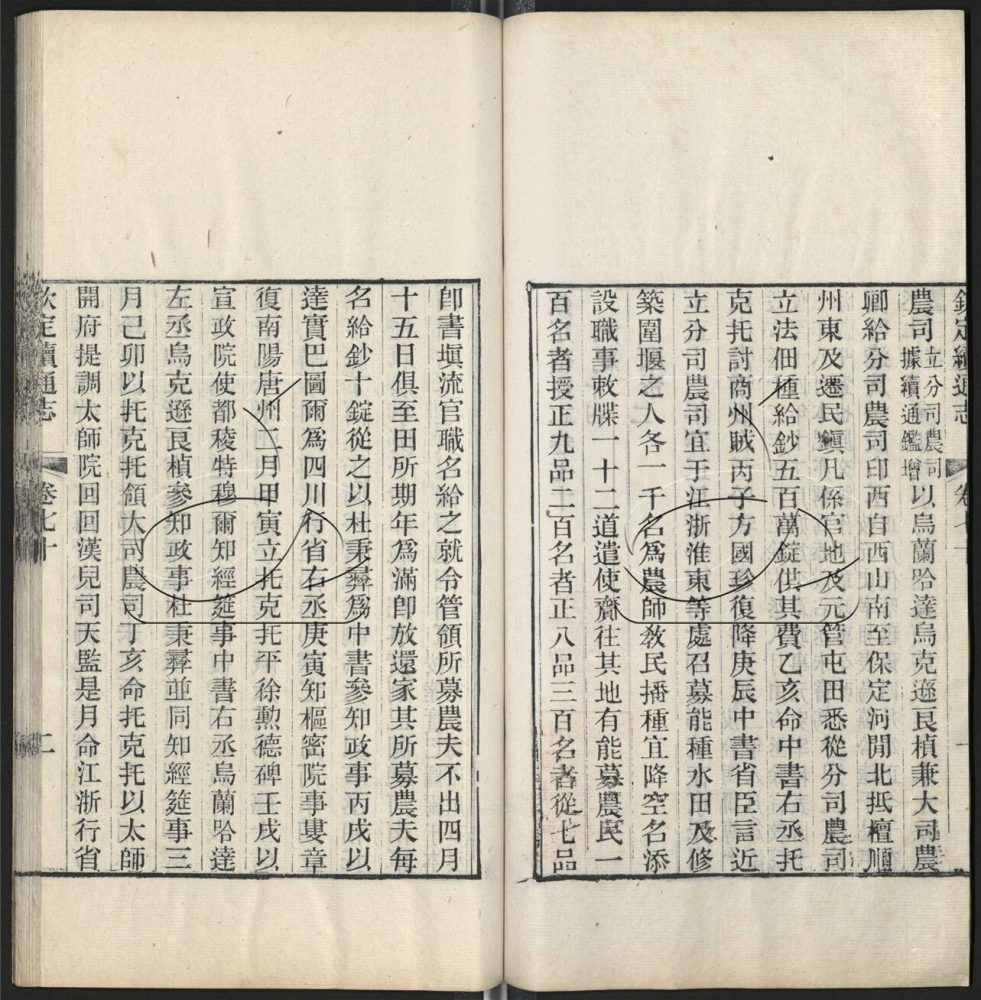 欽定續通志 卷七十 一
農司立分司農司據續通鑑增以烏蘭哈達烏克遜良楨兼大司農
卿給分司農司印西自西山南至保定河間北抵檀順
州東及遷民鎮凡係官地及元管屯田悉從分司農司
立法佃種給鈔五百萬錠供其費乙亥命中書右丞托
克托討商州賊丙子方國珍復降庚辰中書省臣言近
立分司農司宜于江浙淮東等處召募能種水田及修
築圍堰之人各一千名爲農師教民播種宜降空名添
設職事敕牒一十二道遣使齎往其地有能募農民一
百名者授正九品二百名者正八品三百名者從七品
卽書塡流官職名給之就令管領所募農夫不出四月
十五日俱至田所期年爲滿卽放還家其所募農夫每
名給鈔十錠從之以杜秉彞爲中書參知政事丙戌以
達實巴圖爾爲四川行省右丞庚寅知樞密院事婁章
復南陽唐州二月甲寅立托克托平徐勲德碑壬戌以
宣政院使都稜特穆爾知經筵事中書右丞烏蘭哈達
左丞烏克遜良楨參知政事杜秉彞並同知經筵事三
月己卯以托克托領大司農司丁亥命托克托以太師
開府提調太師院回回漢兒司天監是月命江浙行省
欽定續通志 卷七十 二